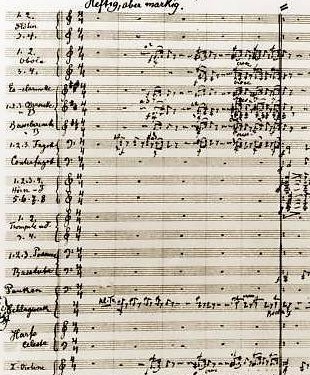 Heftig, aber markig.
1. 2.
Flöten
3. 4.
1. 2.
Oboen
3. 4.
Es-clarinette
1.2.3. Clarinette
in B
Bassclarinette
B
1.2.3. Fagott
Contrafagott
1.2.3.4.
Horn in F
5.6.7.8
1. 2.
Trompete in F.
3. 4.
1.2.3. Posaune
Basstuba
Pauken
Schlagwerk
Harfe
Celeste
I. Violine